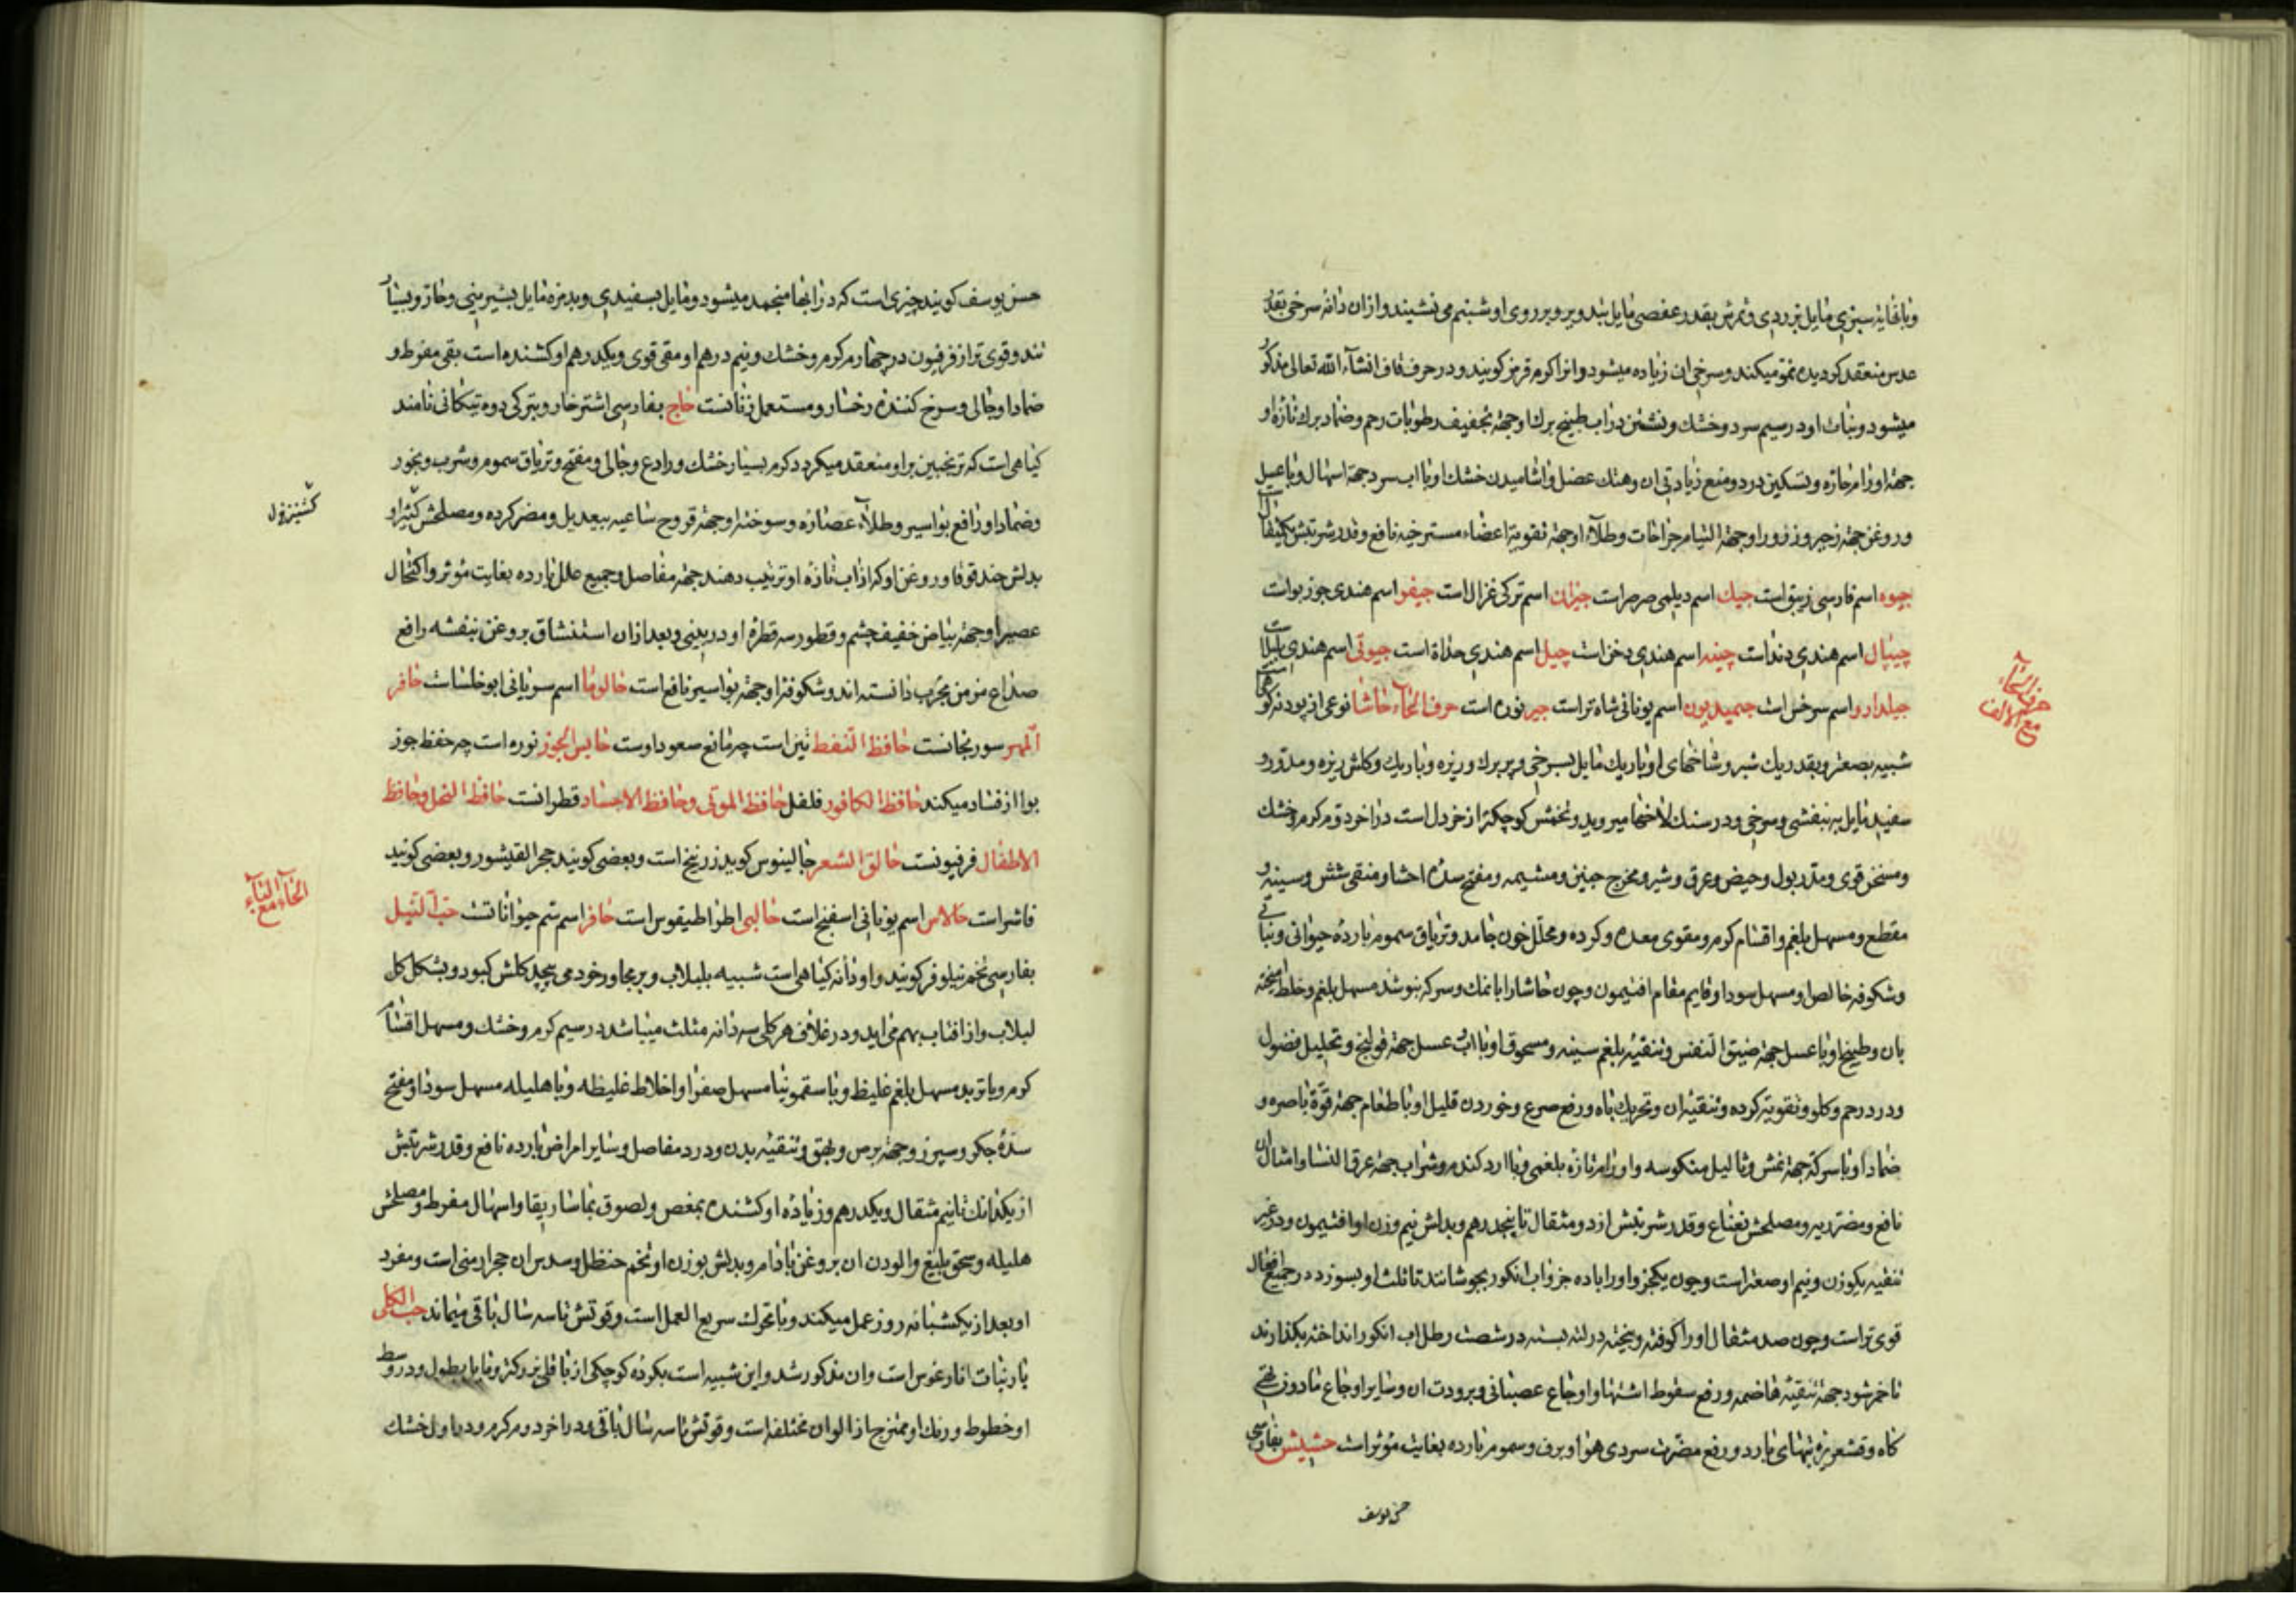 و با فاینه سبزی مایل بزردی و ثمرش بقدر عفصی مایل بتدویر و بر روی او شبنم می نشیند و از ان دانه سرخی بقدر
عدس منعقد کردیده نمو میکند و سرخی ان زیاده میشود و انرا کرم قرمز کویند و در حرف قاف انشاء الله تعالی مذکور
میشود و نبات او در سیم سرد و خشک و نشستن در اب طبیخ برک او جهة تجفیف رطوبات رحم و ضماد برک تازه او
جهة اورام حاره و تسکین درد و منع زیادتی ان و هتک عضل و اشامیدن خشک او با اب سرد جهة اسهال و با عسل
و روغن جهة زحیر و ذرور او جهة التیام جراحات و طلاء او جهة تقویة اعضاء مسترخیه نافع و قدر شربتش یکمثقال است
جیوه اسم فارسی زیبق است جیک اسم دیلمی صرصر است جیران اسم ترکی غزال است جیفو اسم هندی جوز بواست
جیپال اسم هندی دند است چینه اسم هندی دخن است چیل اسم هندی حداة است جیوتی اسم هندی بلبلا است
جیلدارو اسم سرخس است جمیدیون اسم یونانی شاه تر است جیر نوره است حرف الحاء حاشا نوعی از پودنه کوهی است
شبیه بصعتر و بقدر یک شبر و شاخهای او باریک مایل بسرخی و پر برک و ریزه و باریک و کلش ریزه و مدور و
سفید مایل به بنفشی و سرخی و در سنک لاخها میروید و تخمش کوچکتر از خردل است در اخر دوم کرم و خشک
و مسخن قوی و مدر بول و حیض و عرق و شیر و مخرج جنین و مشیمه و مفتح سده احشا و منقی شش و سینه و
مقطع و مسهل بلغم و اقسام کرم و مقوی معده و کرده و محلل خون جامد و تریاق سموم بارده حیوانی و نباتی
و شکوفه خالص او مسهل سودا و قایم مقام افتیمون و چون حاشا را با نمک و سرکه بنوشند مسهل بلغم و خلط
بان و طبیخ او با عسل جهة ضیق النفس و تنقیه بلغم سینه و مسحوق او با اب عسل جهة قولنج و تحلیل فضول
و درد رحم و کلو و تقویة کرده و تنقیه ان و تحریک باه و رفع صرع و خوردن قلیل او با طعام جهة قوة باصره و
ضماد او با سرکه جهة نمش و ثالیل منکوسه و اورام تازه بلغمی و با ارد کندم و شراب جهة عرق النسا و امثال ان
نافع و مضر ریه و مصلحش نعناع و قدر شربتش از دو مثقال تا پنجدرهم و بدلش نیم وزن او افتیمون و در غیر
تنقیه یکوزن و نیم او صعتر است و چون یکجزو او را با ده جزو اب انکور بجوشانند تا ثلث او بسوزد در جمیع افعال
قوی تر است و چون صد مثقال او را کوفته و بیخته در لته بسته در شصت رطل اب انکور انداخته بکذارند
تا خمر شود جهة تنقیه هاضمه و رفع سقوط اشتها و اوجاع عصبانی و برودت ان و سایر اوجاع مادون
کاه و قشعریره تبهای بارد و رفع مضرت سردی هوا و برف و سموم بارده بغایت مؤثر است حشیش بفارسی
حسن یوسف
حرف الحاء مع الالف
حسن یوسف کویند چیزی است که در ابها منجمد میشود و مایل بسفیدی و بدمزه مایل بشیرینی و حار و بسیار
تند و قوی تر از فرفیون در چهارم کرم و خشک و نیم درهم او مقی قوی و یکدرهم او کشنده است بقی مفرط و
ضماد او جالی و سرخ کننده رخسار و مستعمل زنانست حاج بفارسی اشتر خار و بترکی دوه تیکانی نامند
کیاهی است که ترنجبین بر او منعقد میکردد کرم بسیار خشک و رادع و جالی و مفتح و تریاق سموم و شرب و بخور
و ضماد او رافع بواسیر و طلاء عصاره و سوخته او جهة قروح ساعیه بیعدیل و مضر کرده و مصلحش کثیرا و
بدلش حندقوقا و روغن او که از اب تازه او ترتیب دهند جهة مفاصل و جمیع علل بارده بغایت مؤثر و اکتحال
عصیر او جهة بیاض خفیف چشم و قطور سه قطره او در بینی و بعد از ان استنشاق بروغن بنفشه رافع
صداع مزمن مجرب دانسته اند و شکوفه او جهة بواسیر نافع است حالوما اسم سریانی ابوخلساست حافر
المهر سورنجانست حافظ النفط تین است چه مانع صعود اوست حابس الجوز نوره است چه حفظ جوز
بوا از فساد میکند حافظ الکافور فلفل حافظ الموتی و حافظ الاجساد قطرانست حافظ النحل و حافظ
الاطفال فرفیونست حالق الشعر جالینوس کوید زرنیخ است و بعضی کویند حجر القیشور و بعضی کویند
فاشر است حالاس اسم یونانی اسفنج است حالبی اطراطیقوس است حافر اسم سم حیواناتست حب النیل
بفارسی تخم نیلوفر کویند و او دانه کیاهی است شبیه بلبلاب و بر مجاور خود می پیچد کلش کبود و بشکل کل
لبلاب و از افتاب بهم می اید و در غلاف هر کلی سه دانه مثلث میباشد در سیم کرم و خشک و مسهل اقسام
کرم و با تربد مسهل بلغم غلیظ و با سقمونیا مسهل صفرا و اخلاط غلیظه و با هلیله مسهل سودا و مفتح
سده جکر و سپرز و جهة برص و بهق و تنقیه بدن و درد مفاصل و سایر امراض بارده نافع و قدر شربتش
از یکدانک تا نیم مثقال و یکدرهم و زیاده او کشنده بمغص و لصوق بماساریقا و اسهال مفرط و مصلحش
هلیله و سحق بلیغ و الودن ان بروغن بادام و بدلش بوزن او تخم حنظل و سدس ان حجر ارمنی است و مفرد
او بعد از یکشبانه روز عمل میکند و با تحرک سریع العمل است و قوتش تا سه سال باقی میماند حب الکلی
بار نبات اناغورس است و ان مذکور شد و این شبیه است بکرده کوچکی از باقلی بزرکتر و مایل بطول و در وسط
او خطوط و رنک او ممتزج از الوان مختلفه است و قوتش تا سه سال باقی در اخر دوم کرم و در اول خشک
الحاء مع الباء